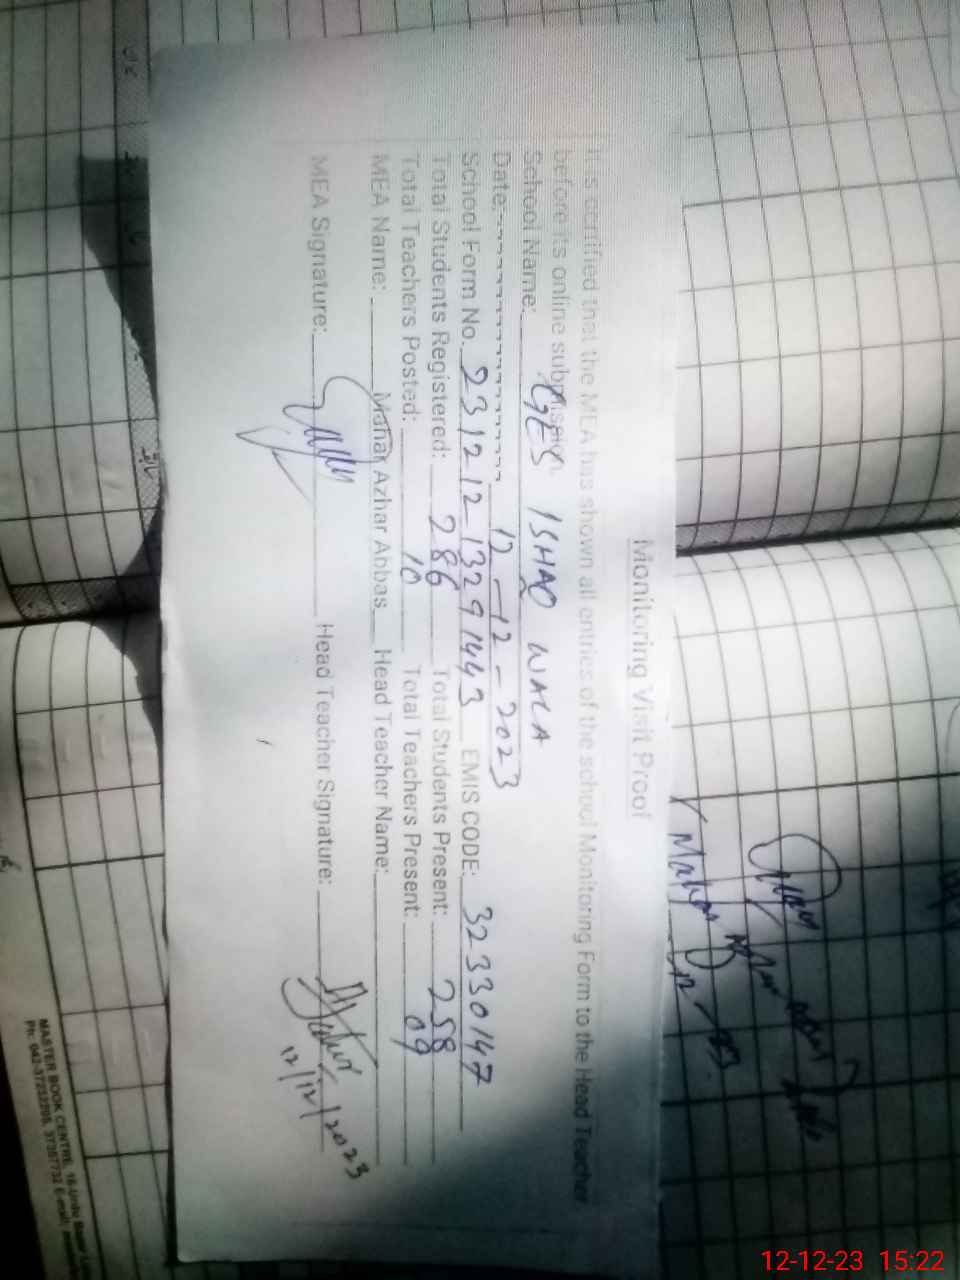 Monitoring Visit Proof
It is certified that the MEA has shown all entries of the school Monitoring Form to the Head Teacher
before its online submission.
School Name: GES ISHAQ WALA
Date: 12-12-2023
School Form No. 231212 1329 1443 EMIS CODE: 32330147
Total Students Registered: 286 Total Students Present: 258
Total Teachers Posted: 10 Total Teachers Present: 09
MEA Name: Mahar Azhar Abbas Head Teacher Name:
MEA Signature: Head Teacher Signature:
12/12/2023
Mahar
MASTER BOOK CENTRE, 16-Urdu Bazar
12-12-23 15:22